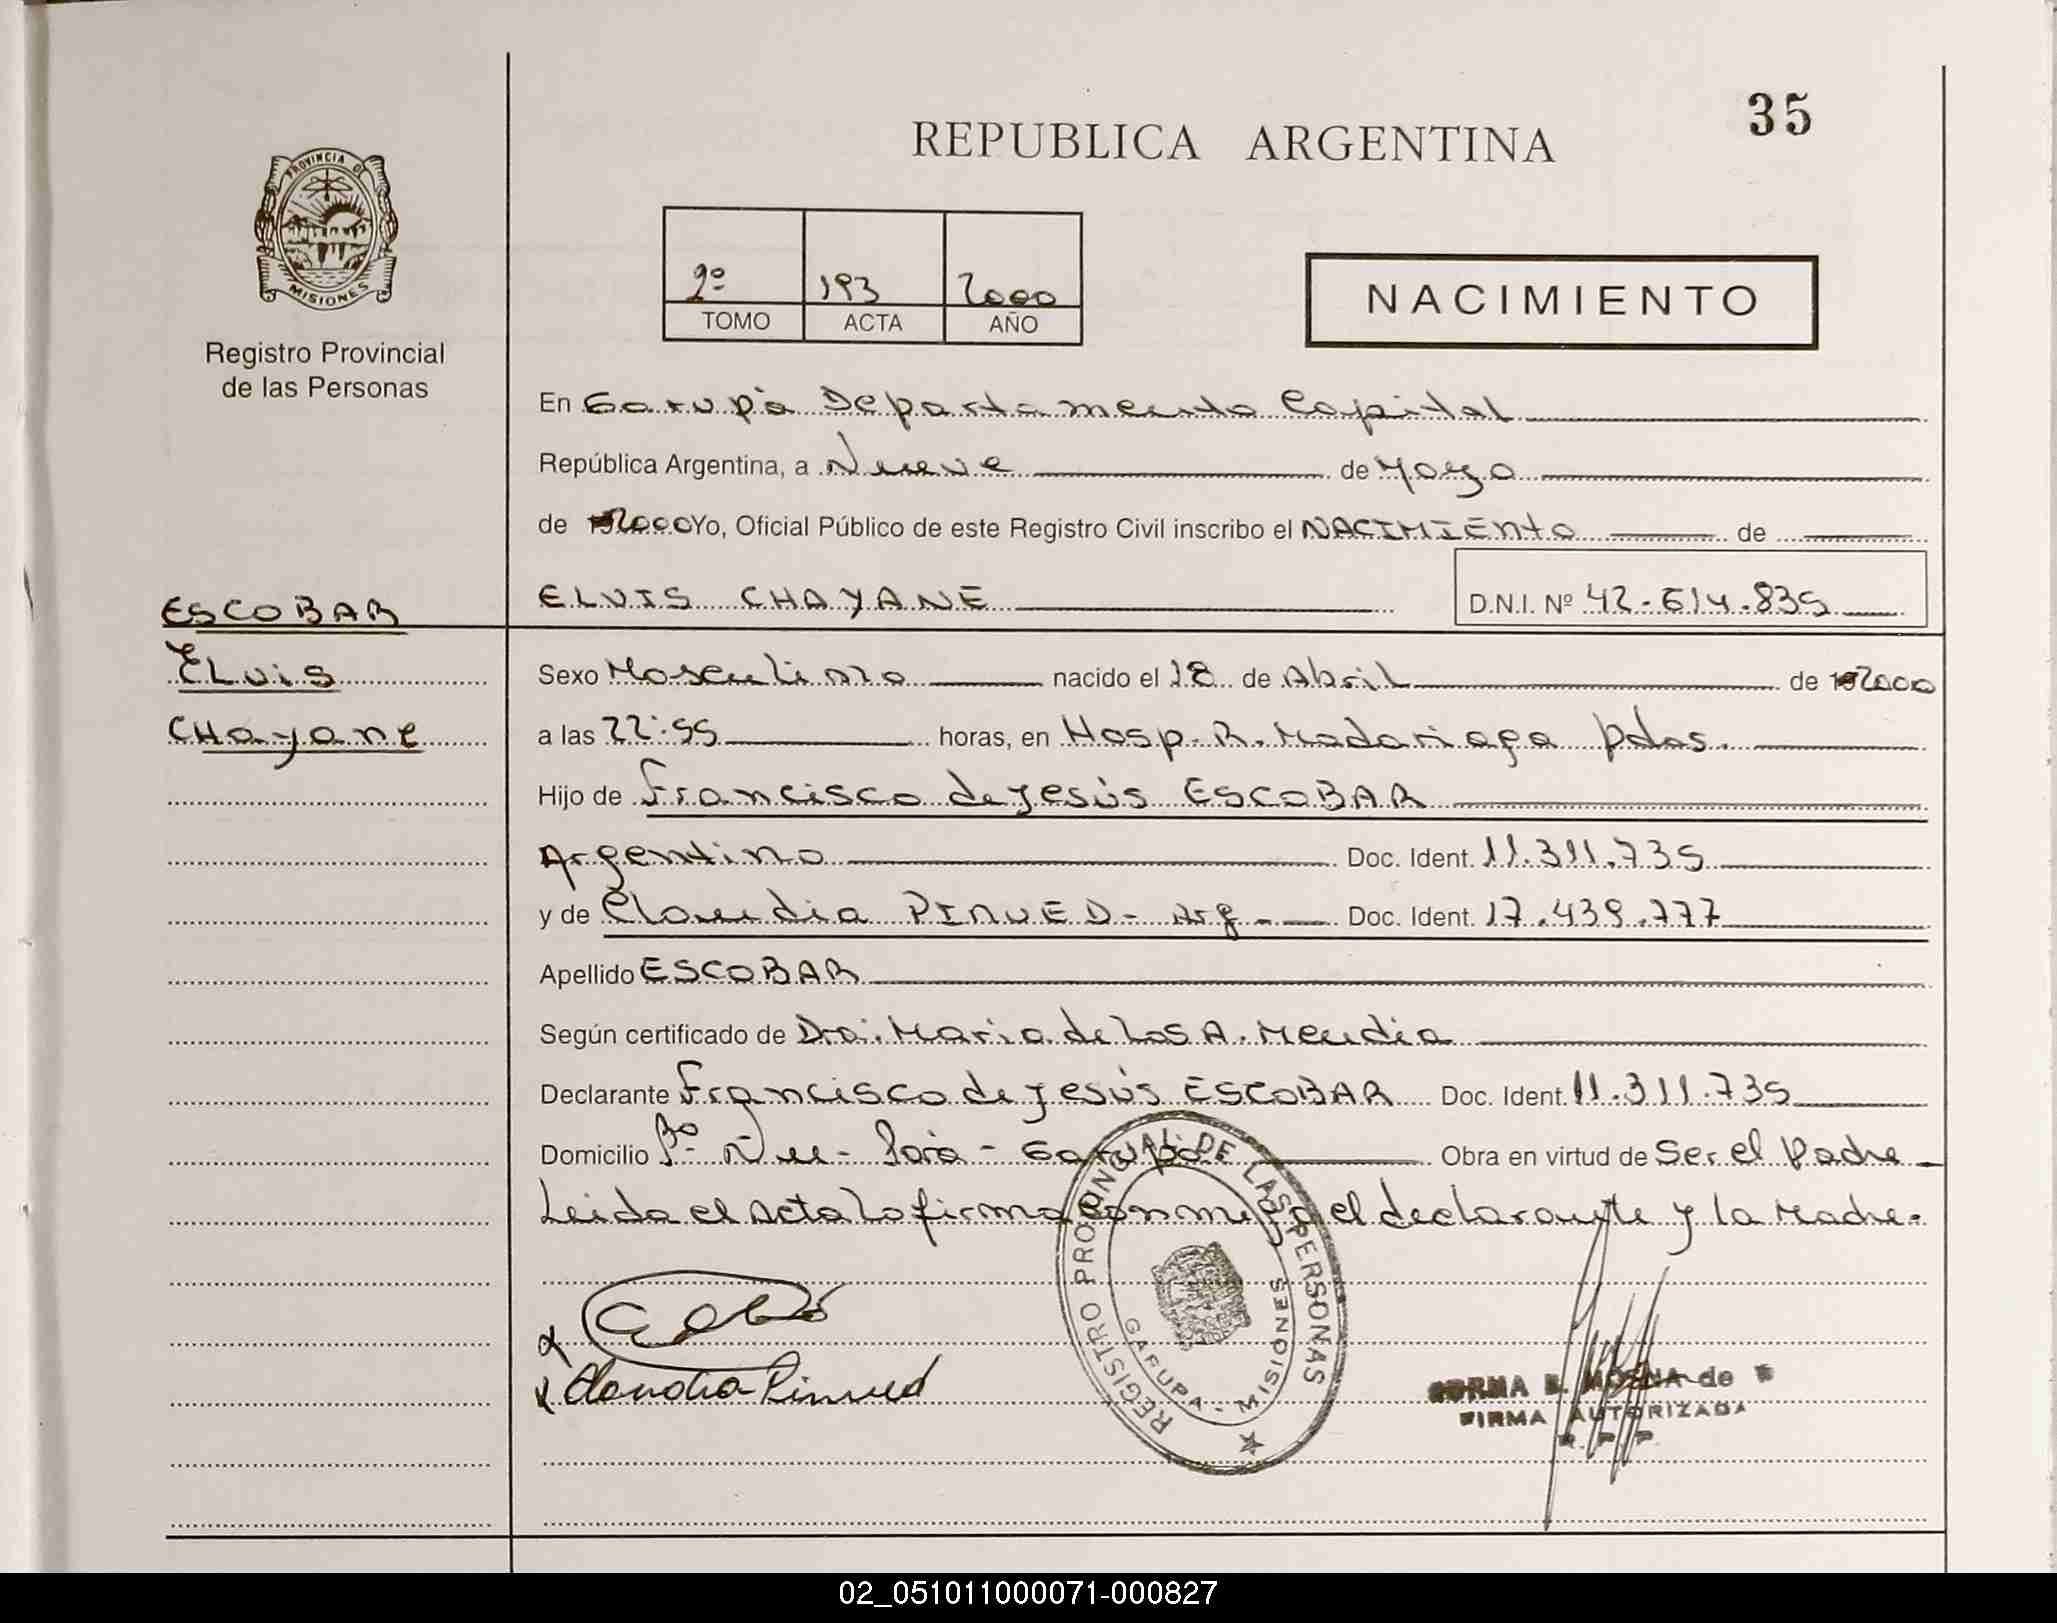 35
REPUBLICA ARGENTINA
PROVINCIA DE
MISIONES
Registro Provincial
de las Personas
2º 193 2000
TOMO ACTA AÑO
NACIMIENTO
En Garupá Departamento Capital
República Argentina, a Nueve de Mayo
de 2000 Yo, Oficial Público de este Registro Civil inscribo el NACIMIENTO de
ELVIS CHAYANE
D.N.I. Nº 42.614.835
ESCOBAR
ELvis
CHayane
Sexo Masculino nacido el 18 de Abril de 2000
a las 22:55 horas, en Hosp. R. Madariaga Pdas.
Hijo de Francisco de Jesús ESCOBAR
Argentino Doc. Ident. 11.311.735
y de Claudia PINUED - Arg - Doc. Ident. 17.439.777
Apellido ESCOBAR
Según certificado de Dra. Maria de Los A. Mendia
Declarante Francisco de Jesús ESCOBAR Doc. Ident. 11.311.735
Domicilio Bº Ñu - Porá - Garupá Obra en virtud de Ser el Padre
Leida el Acta La firma conmigo el declarante y la Madre.
Claudia Pinued
REGISTRO PROVINCIAL DE LAS PERSONAS
GARUPA - MISIONES
NORMA E. MOSNA de
FIRMA AUTORIZADA
R. P. P.
02_051011000071-000827